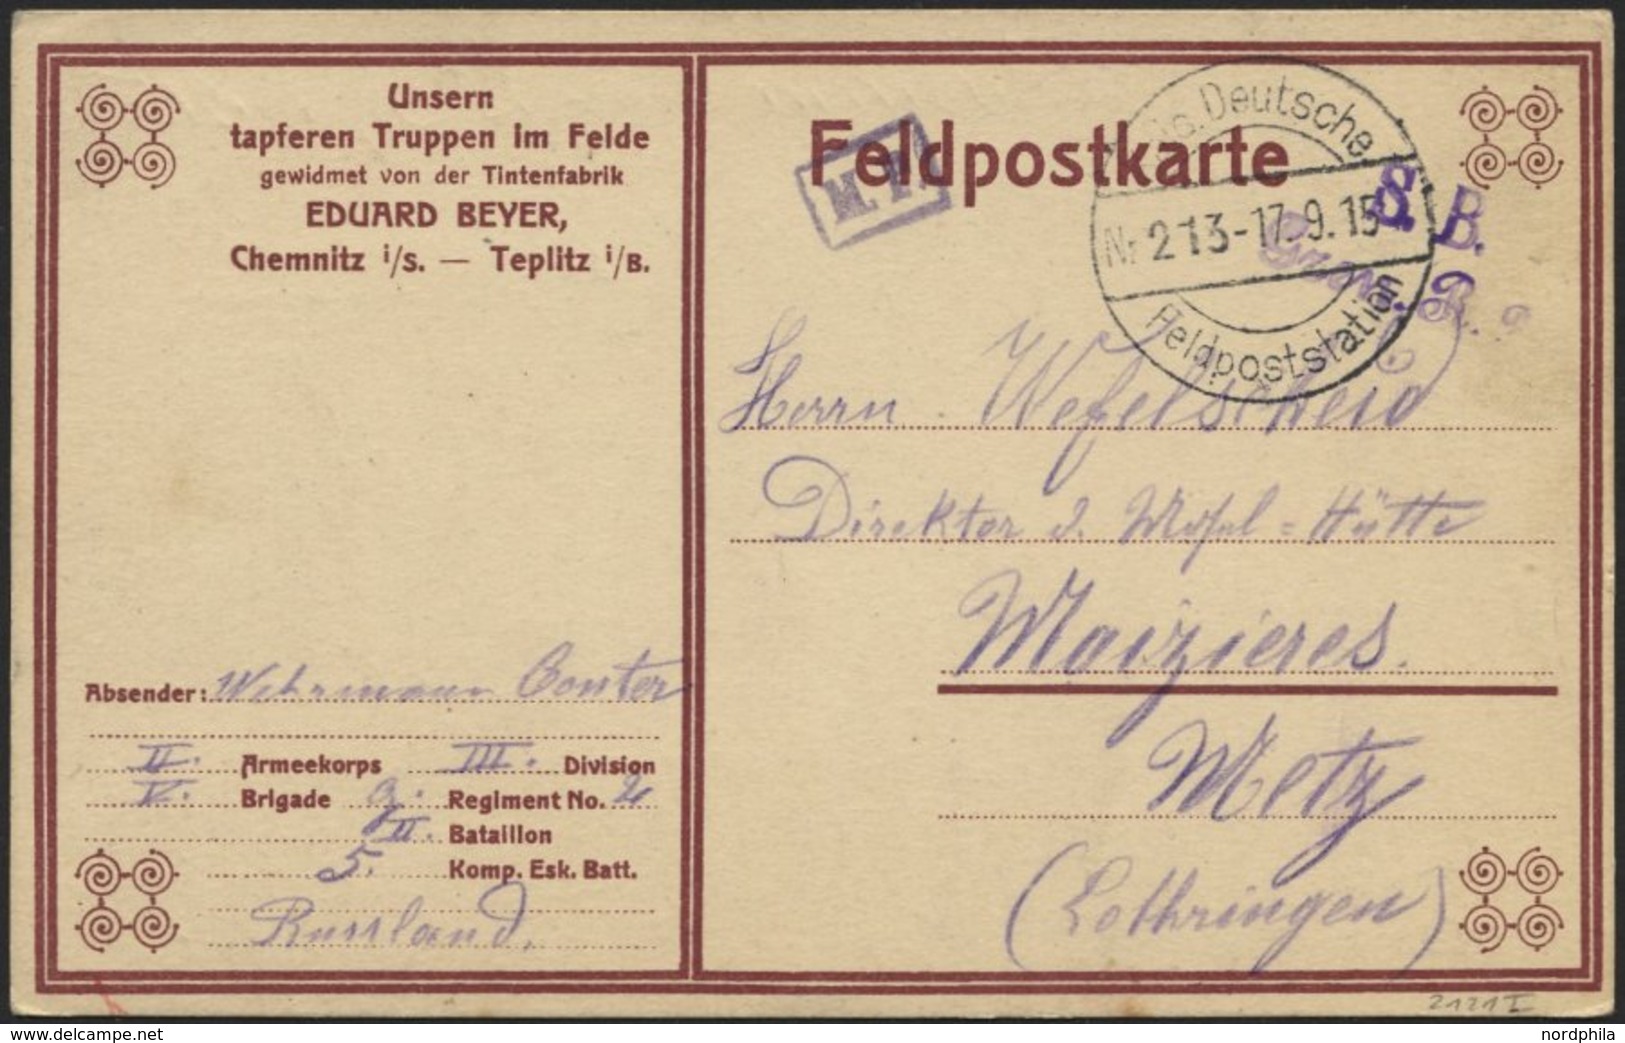 Unsern
tapferen Truppen im Felde
gewidmet von der Tintenfabrik
EDUARD BEYER,
Chemnitz i/S. — Teplitz i/B.
Absender: Wehrmann Conter
II. Armeekorps III. Division
V. Brigade g. Regiment No. 2
II. Bataillon
5. Komp. Esk. Batt.
Russland.
Feldpostkarte
Deutsche
Nr 213-17.9.15
Feldpoststation
S. B.
Herrn Wefelscheid
Direktor d. Mosel=Hütte
Maizieres.
Metz
(Lothringen)
2121 I
delcampe.net
nordphila